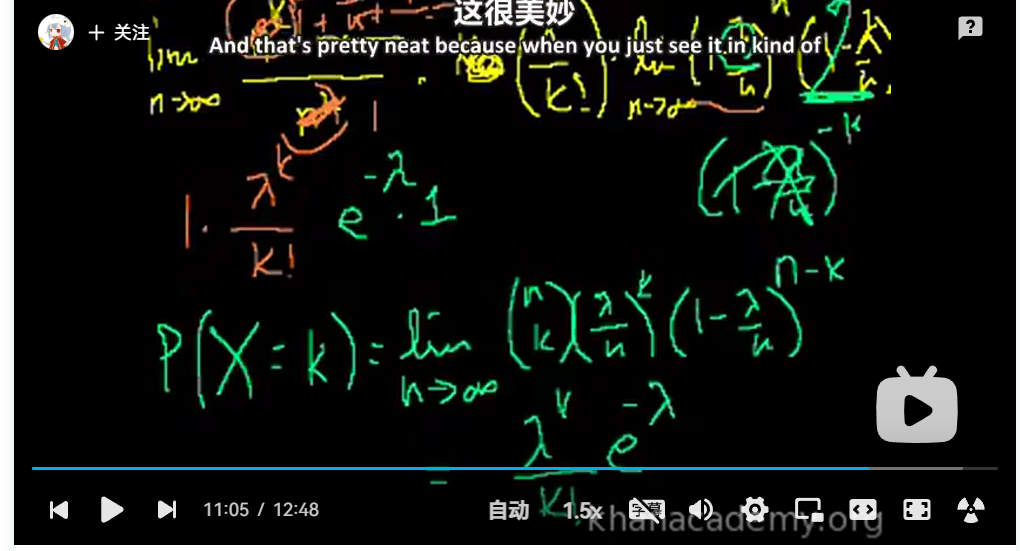 这很美妙
+ 关注
And that's pretty neat because when you just see it in kind of
lim n→∞
k!
lim n→∞
1
1 · λ^k / k! e^-λ · 1
P(X = k) = lim n→∞ (n k)(λ/n)^k (1 - λ/n)^n-k
= λ^k / k! e^-λ
11:05 / 12:48
自动
1.5x
字幕
khanacademy.org